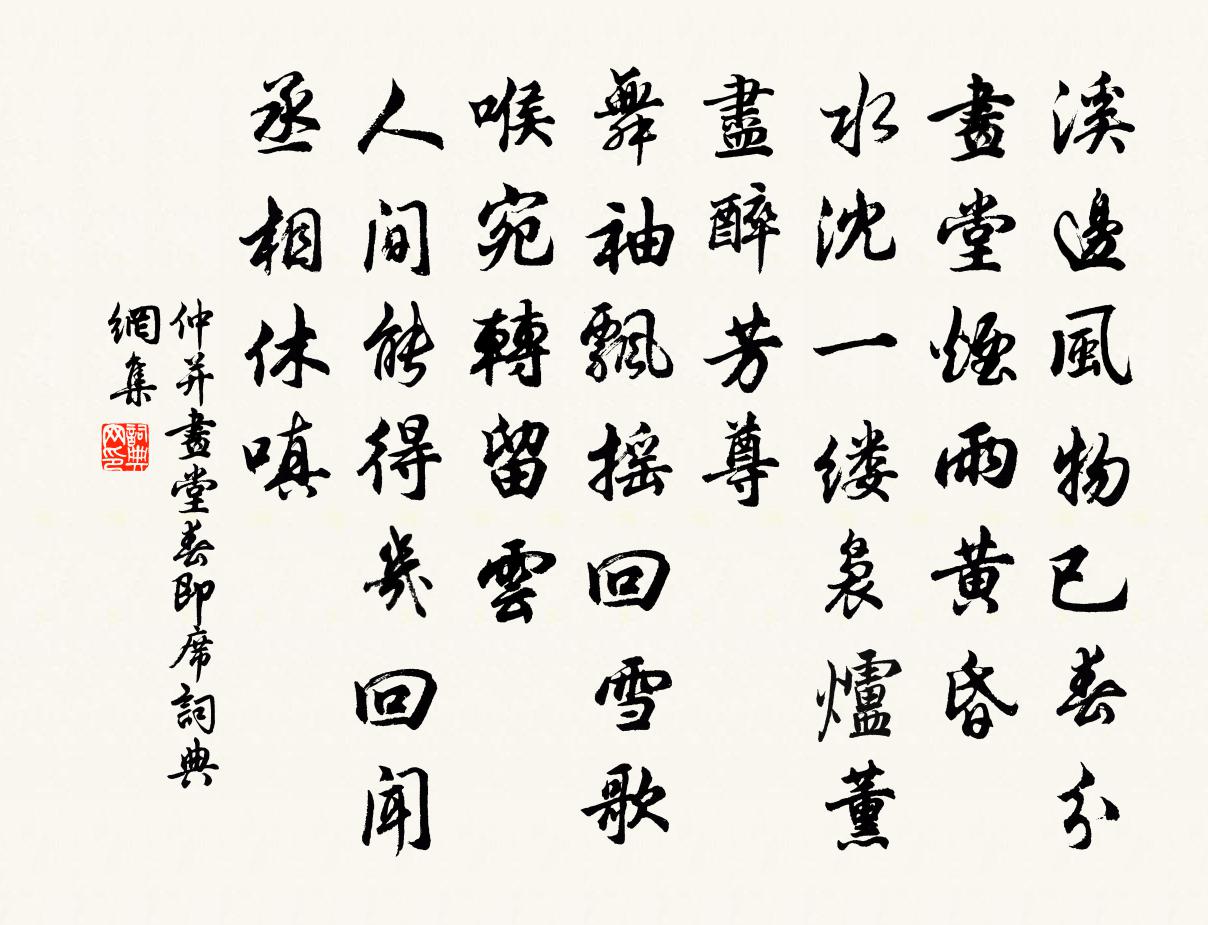 溪邊風物已春分
畫堂煙雨黃昏
水沈一縷裊爐薰
盡醉芳尊
舞袖飄摇回雪歌
喉宛轉留雲
人間能得幾回聞
丞相休嗔
仲并畫堂春即席詞典
網集
詞典網印